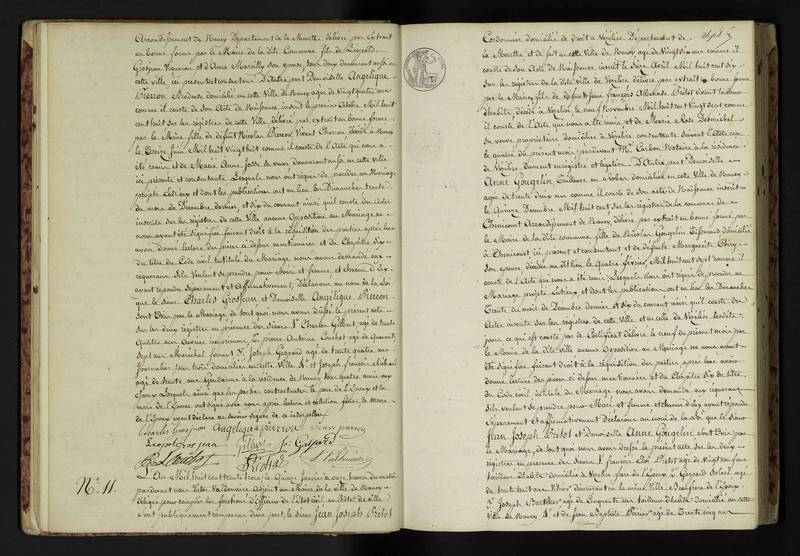 Arrondissement de Nancy Département de la Meurthe délivré par Extrait
en bonne forme par le Maire de la dite Commune fils de Léopold
Grosjean Vigneron et d'Anne Marcilly son épouse, tous deux demeurant
cette ville, ici présents et consentans. D'Autre part Demoiselle Angélique
Pierron Brodeuse domiciliée en cette Ville de Nancy agée de Vingt quatre ans
comme il conste de son Acte de Naissance inscrit le premier Mil huit
cent huit sur les registres de cette Ville délivré par extrait en bonne forme
par le Maire, fille de défunt Nicolas Pierron Vivant Charron, décédé à Nancy
le Treize Juin Mil huit Vingt huit comme il conste de l'Acte qui nous a
été remis et de Marie Anne Josse sa veuve demeurant en cette ville
ici présente et consentante. Lesquels nous ont requis de procéder au Mariage
projeté entr'eux et dont les publications ont eu lieu les Dimanches trente
du mois de Décembre dernier, et six du courant ainsi qu'il conste des Actes
inscrits sur les registres de cette Ville aucune Opposition au Mariage ne
nous ayant été signifiée, faisant droit à la réquisition des parties après leur
avoir donné lecture des pièces ci dessus mentionnées et du Chapitre six
du titre du Code civil intitulé du Mariage nous avons demandé aux
requérans s'ils Veulent se prendre pour Mari et femme, et chacun d'eux
ayant répondu séparément et affirmativement, Déclarons au nom de la loi
que le Sieur Charles Grosjean et Demoiselle Angélique Pierron
sont Unis par le Mariage, de tout quoi nous avons dressé le présent acte
sur les deux registres en présence des Sieurs 1° Charles Gilbert, agé de trente
quatre ans 2° pierre Antoine Louchot agé de Quarante
sept ans Maréchal ferrant 3° Joseph Gaspard agé de trente quatre ans
Journalier tous trois domiciliés en cette Ville 4° et Joseph françois
agé de trente ans Gendarme à la résidence de Nancy tous quatre amis aux
Epoux Lesquels ainsi que les parties contractantes le père de l'Epoux et la
mère de l'Epouse ont signé avec nous après lecture et collation faite, la mère
de l'Epoux ayant déclaré ne savoir signer de ce interpellée
Charles Grosjean Angélique Pierron
Leopol Grosjean Gilbert J. Gaspard
N° 11.
L'An Mil huit cent trente trois, le Quinze Janvier à onze heures du matin
pardevant nous Victor Valdenaire Adjoint au Maire de la ville de Nancy
délégué pour remplir les fonctions d'Officier de l'Etat civil en l'hôtel de ville
sont publiquement comparus d'une part, le sieur Jean Joseph Pretot
Sept
Cordonnier domicilié de droit à Vézelise Département de
la Meurthe et de fait en cette Ville de Nancy agé de Vingt six ans comme il
conste de son Acte de Naissance inscrit le Avril Mil huit cent six
sur les registres de la dite Ville de Vézelise délivré par extrait en bonne forme
par le Maire, fils de défunt Jean françois Pretot vivant tailleur
d'habits décédé à Vézelise le neuf Novembre Mil huit cent vingt sept comme
il conste de l'Acte qui nous a été remis et de Marie Rose Desmichel
sa veuve propriétaire domiciliée à Vézelise consentante suivant l'Acte reçu
le quatre du présent mois pardevant Me Carbon Notaire à la résidence
de Vézelise dument enregistré et légalisé. D'Autre part Demoiselle
Anne Gougelin Tailleuse en robes domiciliée en cette Ville de Nancy
agée de trente deux ans comme il conste de son acte de Naissance inscrit
le Quinze Décembre Mil huit cent sur les registres de la commune de
Chenicourt Arrondissement de Nancy délivré par extrait en bonne forme par
le Maire de la dite commune, fille de Nicolas Gougelin Tisserand domicilié
à Chenicourt ici présent et consentant et de défunte Marguerite Thiry
son épouse, décédée au dit lieu le Quatre février, Mil huit cent sept comme il
conste de l'Acte qui nous a été remis. Lesquels nous ont requis de procéder au
Mariage projeté entr'eux et dont les publications ont eu lieu les Dimanches
Trente du mois de Décembre dernier et six du courant ainsi qu'il conste des
Actes inscrits sur les registres de cette Ville et en celle de Vézelise lesdits
jours ce qui est constaté par le Certificat délivré le neuf du présent mois par
le Maire de la dite Ville aucune Opposition au Mariage ne nous ayant
été signifiée, faisant Droit à la réquisition des parties, après leur avoir
donné lecture des pièces ci dessus mentionnées et du Chapitre six du titre
du Code civil, intitulé du Mariage nous avons demandé aux requérans
s'ils veulent se prendre pour Mari et femme et chacun d'eux ayant répondu
séparément et affirmativement Déclarons au nom de la loi que le sieur
Jean Joseph Pretot et Demoiselle Anne Gougelin sont Unis par
le Mariage, de tout quoi nous avons dressé le présent acte sur les deux
registres en présence des Sieurs 1° françois Pretot agé de Vingt neuf ans
tailleur d'habits domicilié à Vézelise frère de l'Epoux 2° Gaspard
agé de trente huit ans demeurant en la même Ville Beaufrère de l'Epoux
3° Joseph Barthélemy agé de Cinquante ans tailleur d'habits domicilié en cette
Ville de Nancy, 4° et de Jean Baptiste Poirier agé de Trente cinq ans